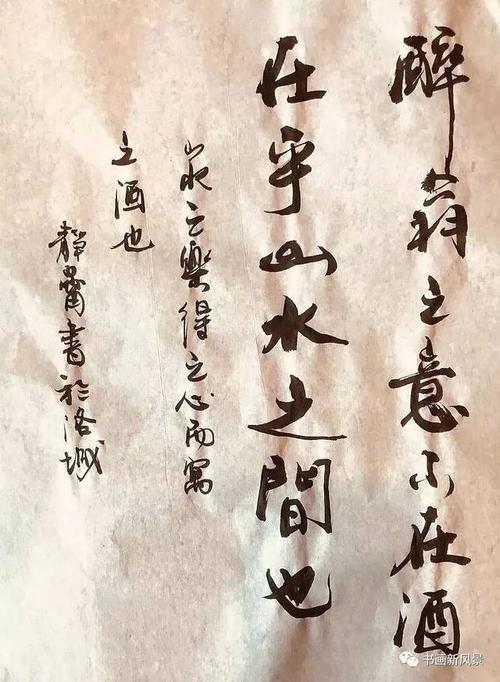 醉翁之意不在酒
在乎山水之間也
山水之樂得之心而寓
之酒也
靜甯書於洛城
书画新风景